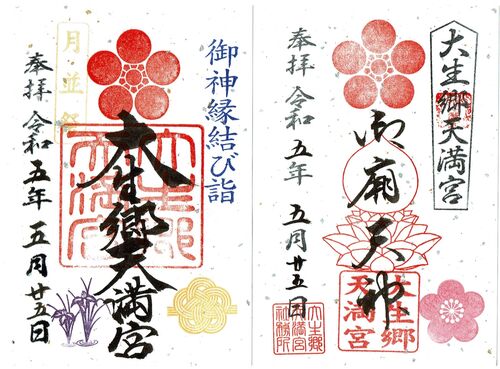 御神縁結び詣
大生郷天満宮
月並祭
奉拝 令和五年五月廿五日
大生郷天満宮
大生郷天満宮
御廟天神
大生郷
天満宮
奉拝 令和五年 五月廿五日
大生郷
天満宮
社務所